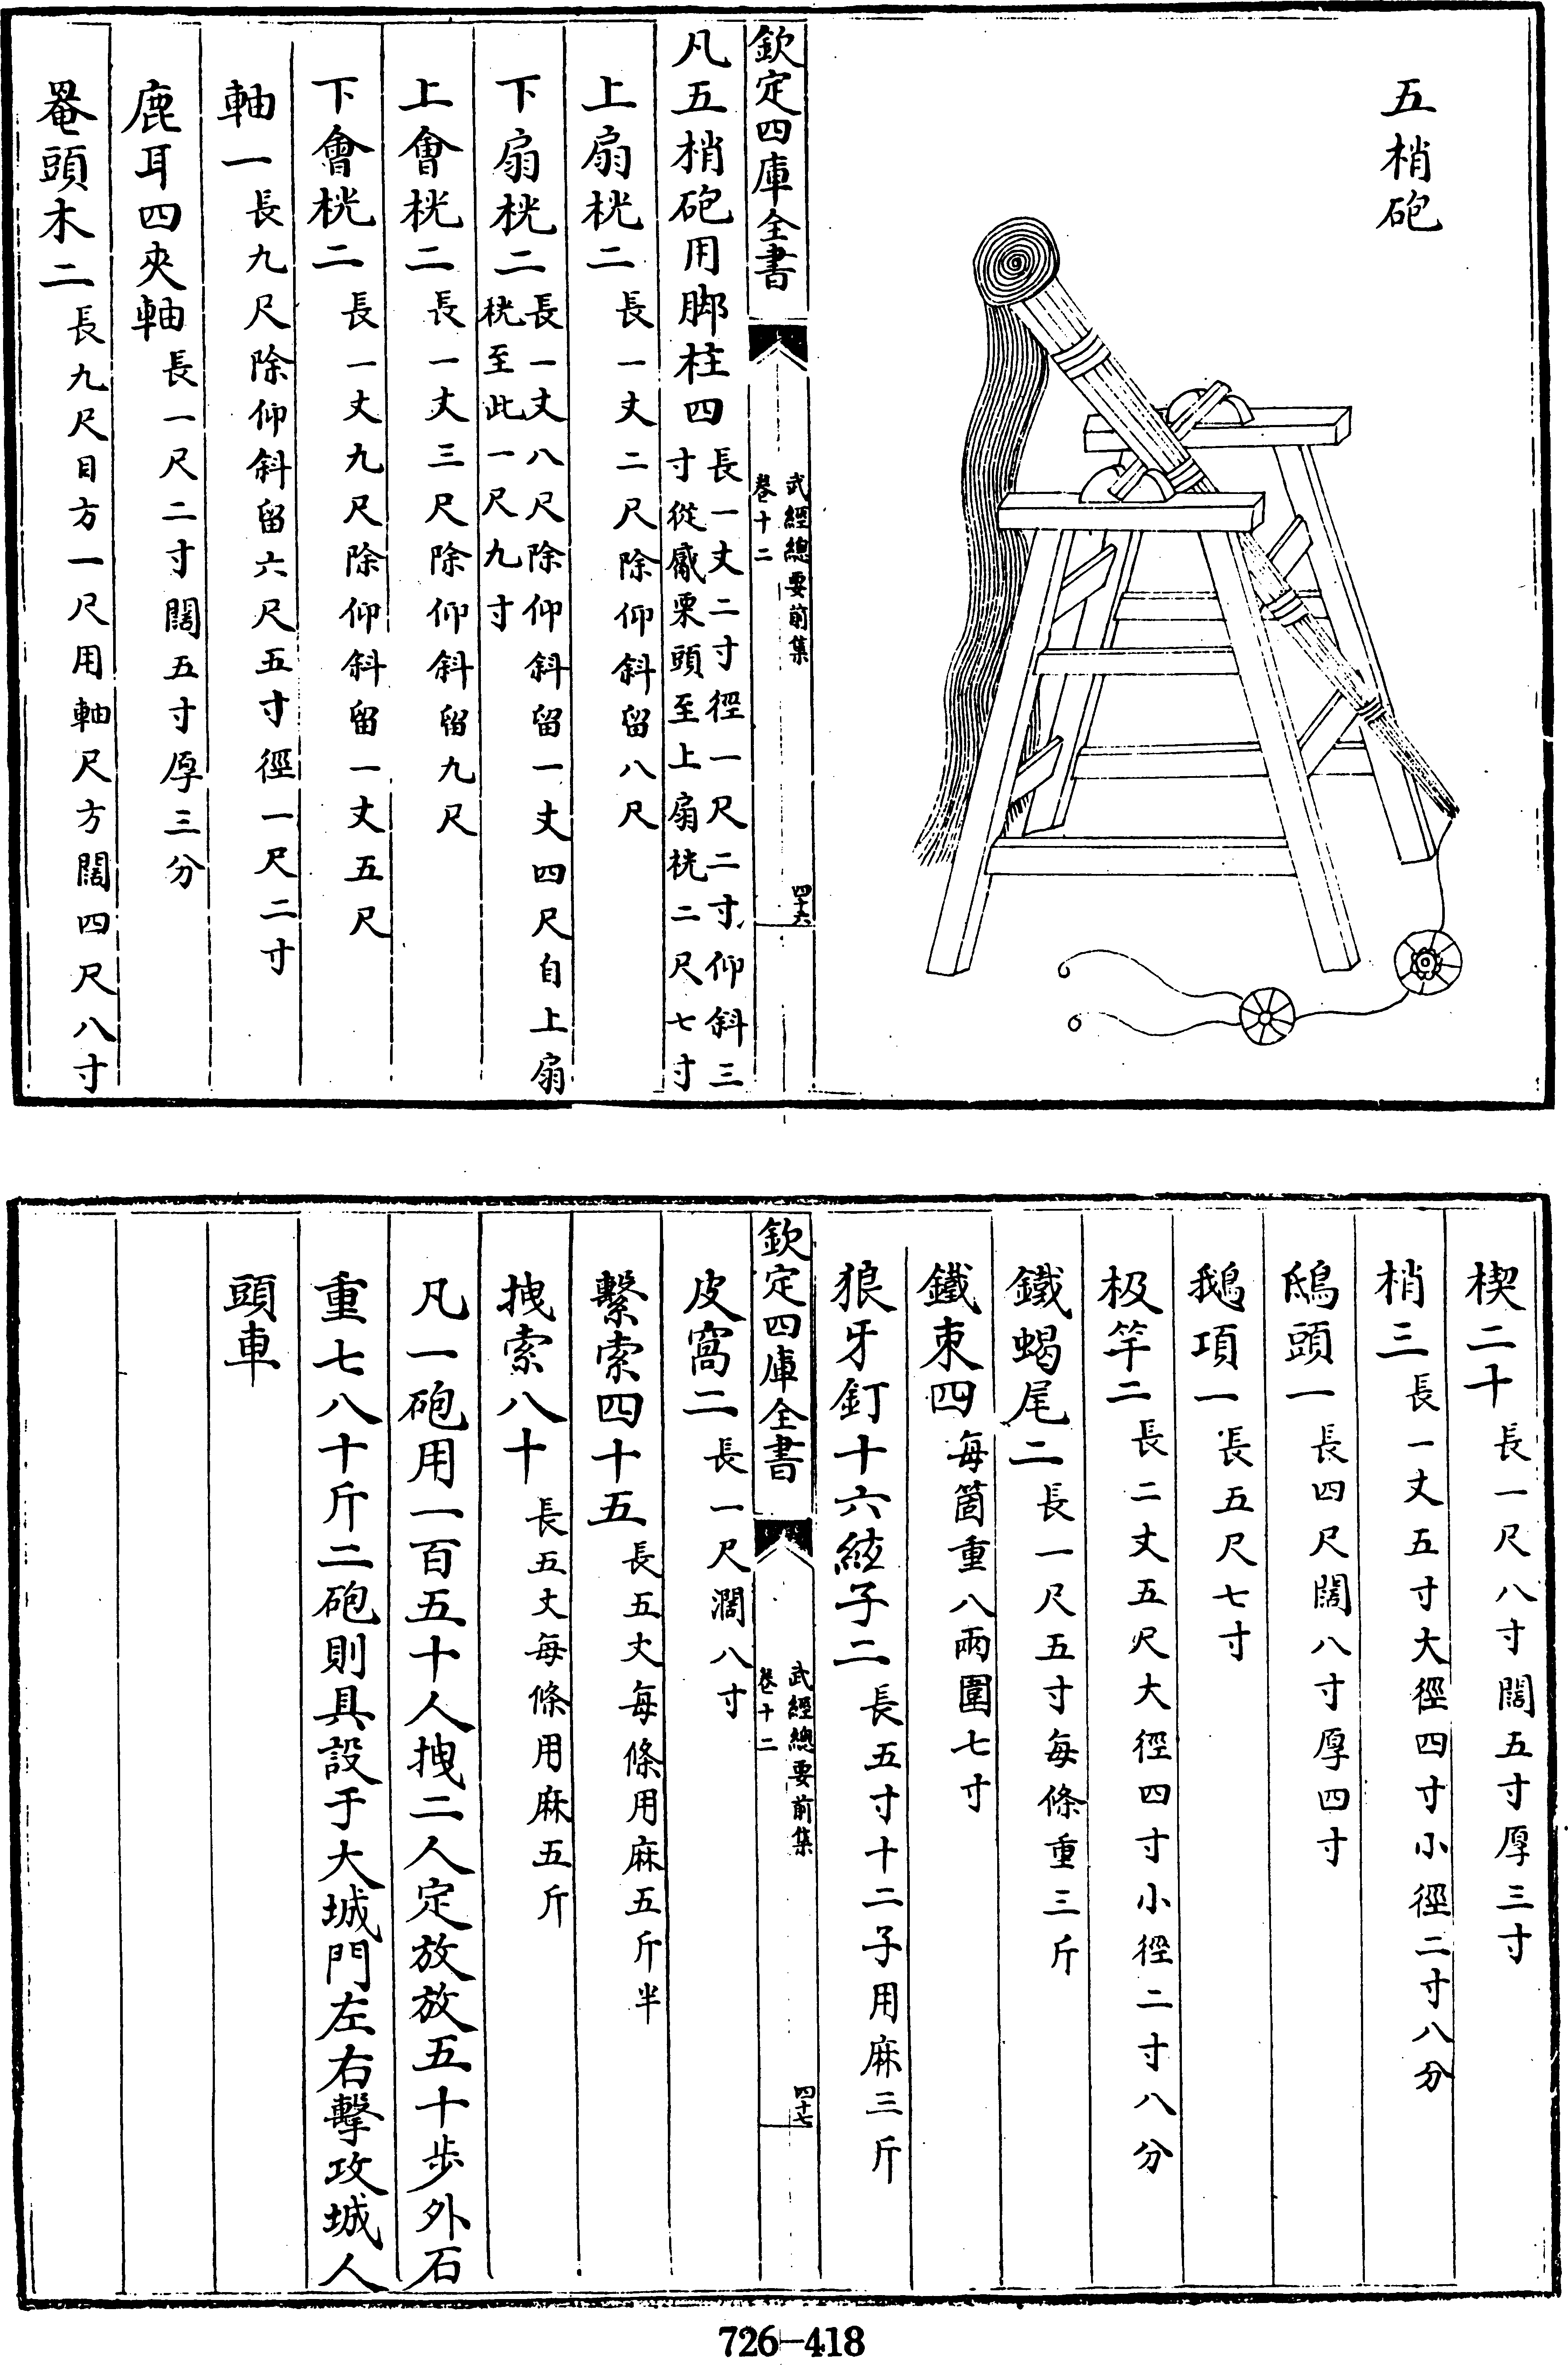 五梢砲
欽定四庫全書
武經總要前集
卷十二
四十六
凡五梢砲用脚柱四長一丈二寸徑一尺二寸仰斜三
寸從罻栗頭至上扇桄二尺七寸
上扇桄二長一丈二尺除仰斜留八尺
下扇桄二長一丈八尺除仰斜留一丈四尺自上扇
桄至此一尺九寸
上會桄二長一丈三尺除仰斜留九尺
下會桄二長一丈九尺除仰斜留一丈五尺
軸一長九尺除仰斜留六尺五寸徑一尺二寸
鹿耳四夾軸長一尺二寸闊五寸厚三分
罨頭木二長九尺目方一尺用軸尺方闊四尺八寸
楔二十長一尺八寸闊五寸厚三寸
梢三長一丈五寸大徑四寸小徑二寸八分
鴟頭一長四尺闊八寸厚四寸
鵝項一長五尺七寸
极竿二長二丈五尺大徑四寸小徑二寸八分
鐵蝎尾二長一尺五寸每條重三斤
鐵束四每箇重八兩圍七寸
狼牙釘十六絞子二長五寸十二子用麻三斤
欽定四庫全書
武經總要前集
卷十二
四十七
皮窩二長一尺濶八寸
繫索四十五長五丈每條用麻五斤半
拽索八十長五丈每條用麻五斤
凡一砲用一百五十人拽二人定放放五十步外石
重七八十斤二砲則具設于大城門左右擊攻城人
頭車
726-418